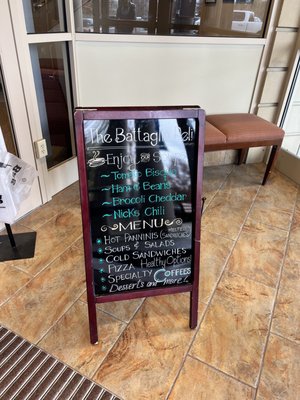 The Battaglia Deli!
Enjoy Our Soups
~Tomato Bisque
~Ham & Beans
~Brocoli Cheddar
~Nicks Chili
MENU
* Hot Panninis
* Soups & Salads
* Cold Sandwiches
* Pizza Healthy Options!
* Specialty Coffees
* Desserts and more!!